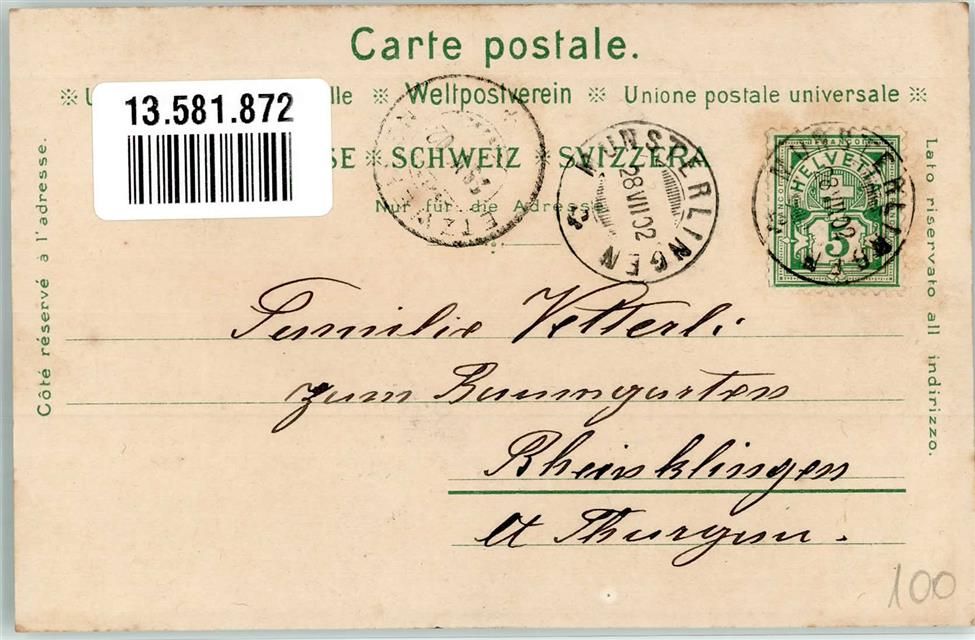 Carte postale.
13.581.872
lle ※ Weltpostverein ※ Unione postale universale ※
SE ※ SCHWEIZ ※ SVIZZERA
Nur für die Adresse
Côté réservé à l'adresse.
Lato riservato all indirizzo.
MÜNSTERLINGEN
28 VII 02
FRANCO
HELVETIA
5
MÜNSTERLINGEN
28 VII 02
Familie Vetterli
zum Baumgarten
Rheinklingen
Ct Thurgau.
100